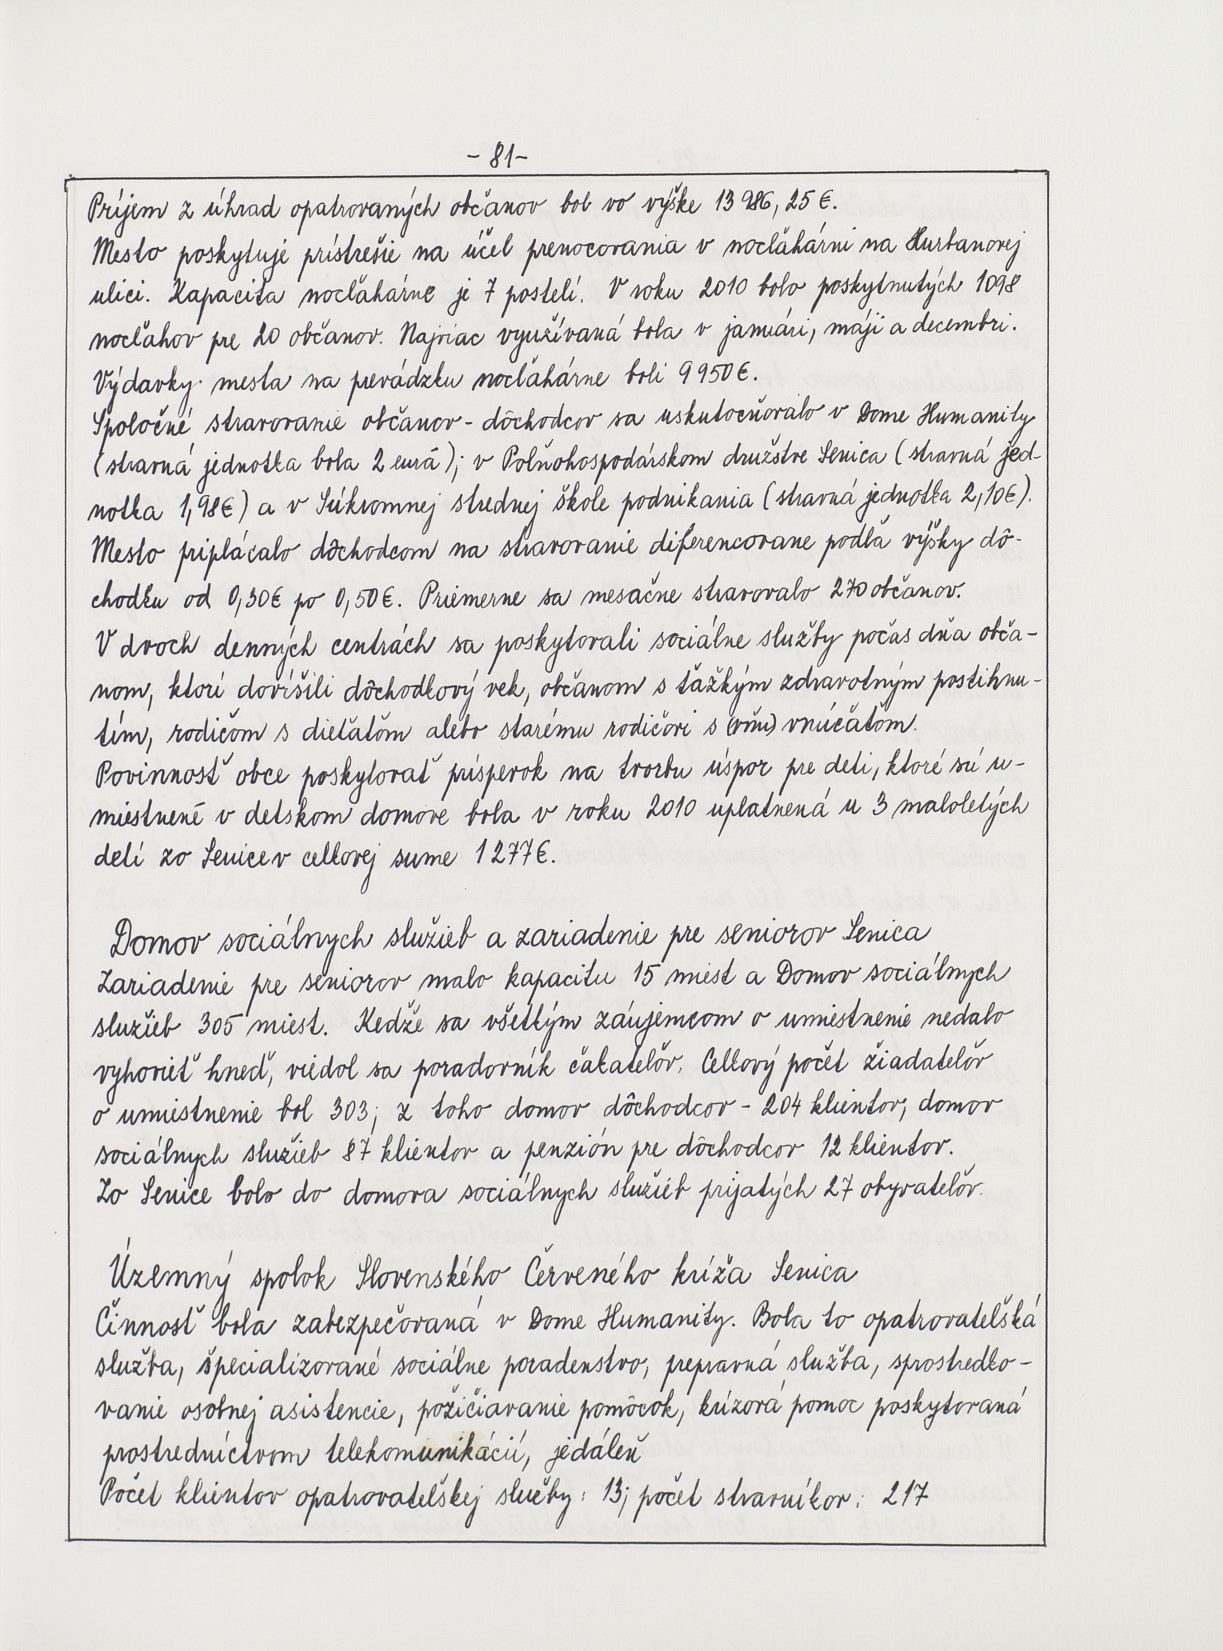 - 81 -
Príjem z úhrad opatrovaných občanov bol vo výške 13 986,25 €.
Mesto poskytuje prístrešie na účel prenocovania v nocľahárni na Hurbanovej
ulici. Kapacita nocľahárne je 7 postelí. V roku 2010 bolo poskytnutých 1098
nocľahov pre 20 občanov. Najviac využívaná bola v januári, máji a decembri.
Výdavky mesta na prevádzku nocľahárne boli 9 950 €.
Spoločné stravovanie občanov - dôchodcov sa uskutočňovalo v Dome Humanity
(stravná jednotka bola 2 eurá); v Poľnohospodárskom družstve Senica (stravná jed-
notka 1,98 €) a v Súkromnej strednej škole podnikania (stravná jednotka 2,10 €).
Mesto priplácalo dôchodcom na stravovanie diferencovane podľa výšky dô-
chodku od 0,30 € po 0,50 €. Priemerne sa mesačne stravovalo 270 občanov.
V dvoch denných centrách sa poskytovali sociálne služby počas dňa obča-
nom, ktorí dovŕšili dôchodkový vek, občanom s ťažkým zdravotným postihnu-
tím, rodičom s dieťaťom alebo starému rodičovi s (vňu) vnúčaťom.
Povinnosť obce poskytovať príspevok na tvorbu úspor pre deti, ktoré sú u-
miestnené v detskom domove bola v roku 2010 uplatnená u 3 maloletých
detí zo Senice v celkovej sume 1 277 €.
Domov sociálnych služieb a zariadenie pre seniorov Senica
Zariadenie pre seniorov malo kapacitu 15 miest a Domov sociálnych
služieb 305 miest. Kedže sa všetkým záujemcom o umiestnenie nedalo
vyhovieť hneď, viedol sa poradovník čakateľov. Celkový počet žiadateľov
o umiestnenie bol 303; z toho domov dôchodcov - 204 klientov, domov
sociálnych služieb 87 klientov a penzión pre dôchodcov 12 klientov.
Zo Senice bolo do domova sociálnych služieb prijatých 27 obyvateľov.
Územný spolok Slovenského Červeného kríža Senica
Činnosť bola zabezpečovaná v Dome Humanity. Bola to opatrovateľská
služba, špecializované sociálne poradenstvo, prepravná služba, sprostredko-
vanie osobnej asistencie, požičiavanie pomôcok, krízová pomoc poskytovaná
prostredníctvom telekomunikácií, jedáleň
Počet klientov opatrovateľskej služby: 13; počet stravníkov: 217